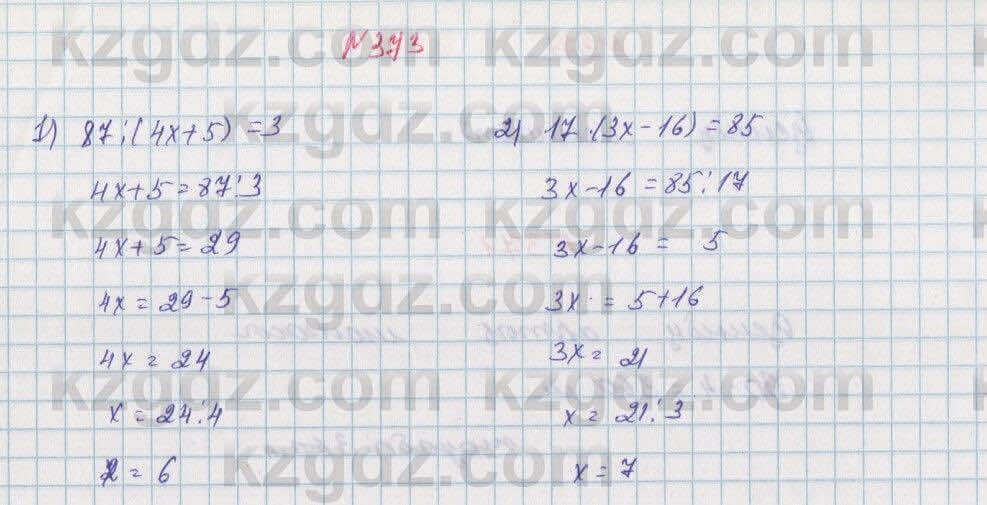 №373
1) 87:(4x+5)=3
4x+5=87:3
4x+5=29
4x=29-5
4x=24
x=24:4
x=6
2) 17·(3x-16)=85
3x-16=85:17
3x-16=5
3x=5+16
3x=21
x=21:3
x=7
kzgdz.com
kzgdz.com
kzgdz.com
kzgdz.com
kzgdz.com
kzgdz.com
kzgdz.com
kzgdz.com
kzgdz.com